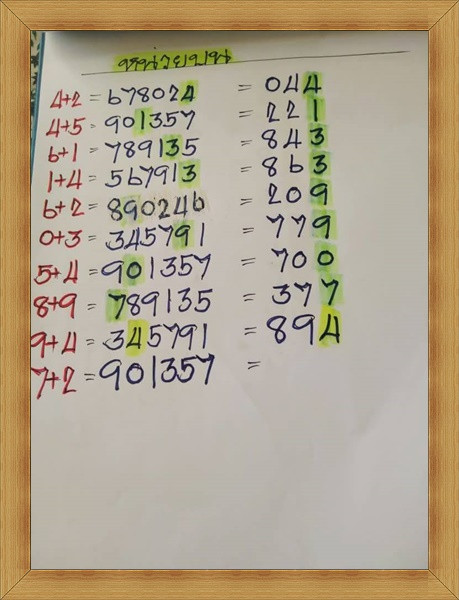 หน่วยบน
4+2 = 678024 = 044
4+5 = 901357 = 221
6+1 = 789135 = 843
1+4 = 567913 = 863
6+2 = 890246 = 209
0+3 = 345791 = 779
5+4 = 901357 = 700
8+9 = 789135 = 377
9+4 = 345791 = 894
7+2 = 901357 =